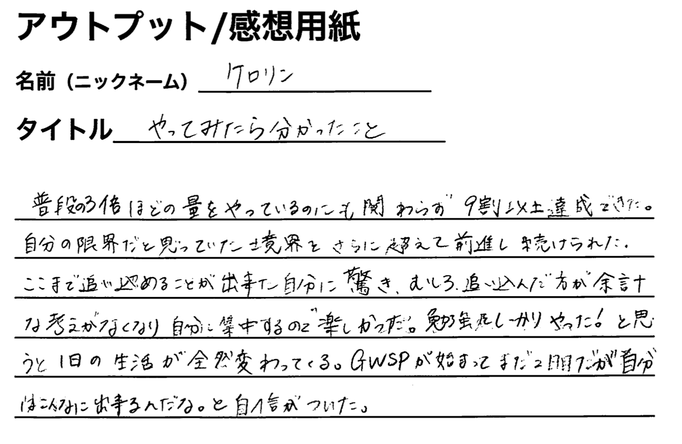 アウトプット/感想用紙
名前（ニックネーム） ケロリン
タイトル やってみたら分かったこと
普段の3倍ほどの量をやっているのにも関わらず9割以上達成できた。
自分の限界だと思っていた境界をさらに超えて前進し続けられた。
ここまで追い込めることが出来た自分に驚き、むしろ追い込んだ方が余計
な考えがなくなり自分に集中するので楽しかった。勉強をしっかりやった！と思
うと1日の生活が全然変わってくる。GWSPが始まってまだ2日間だが自分
はこんなに出来るんだな。と自信がついた。